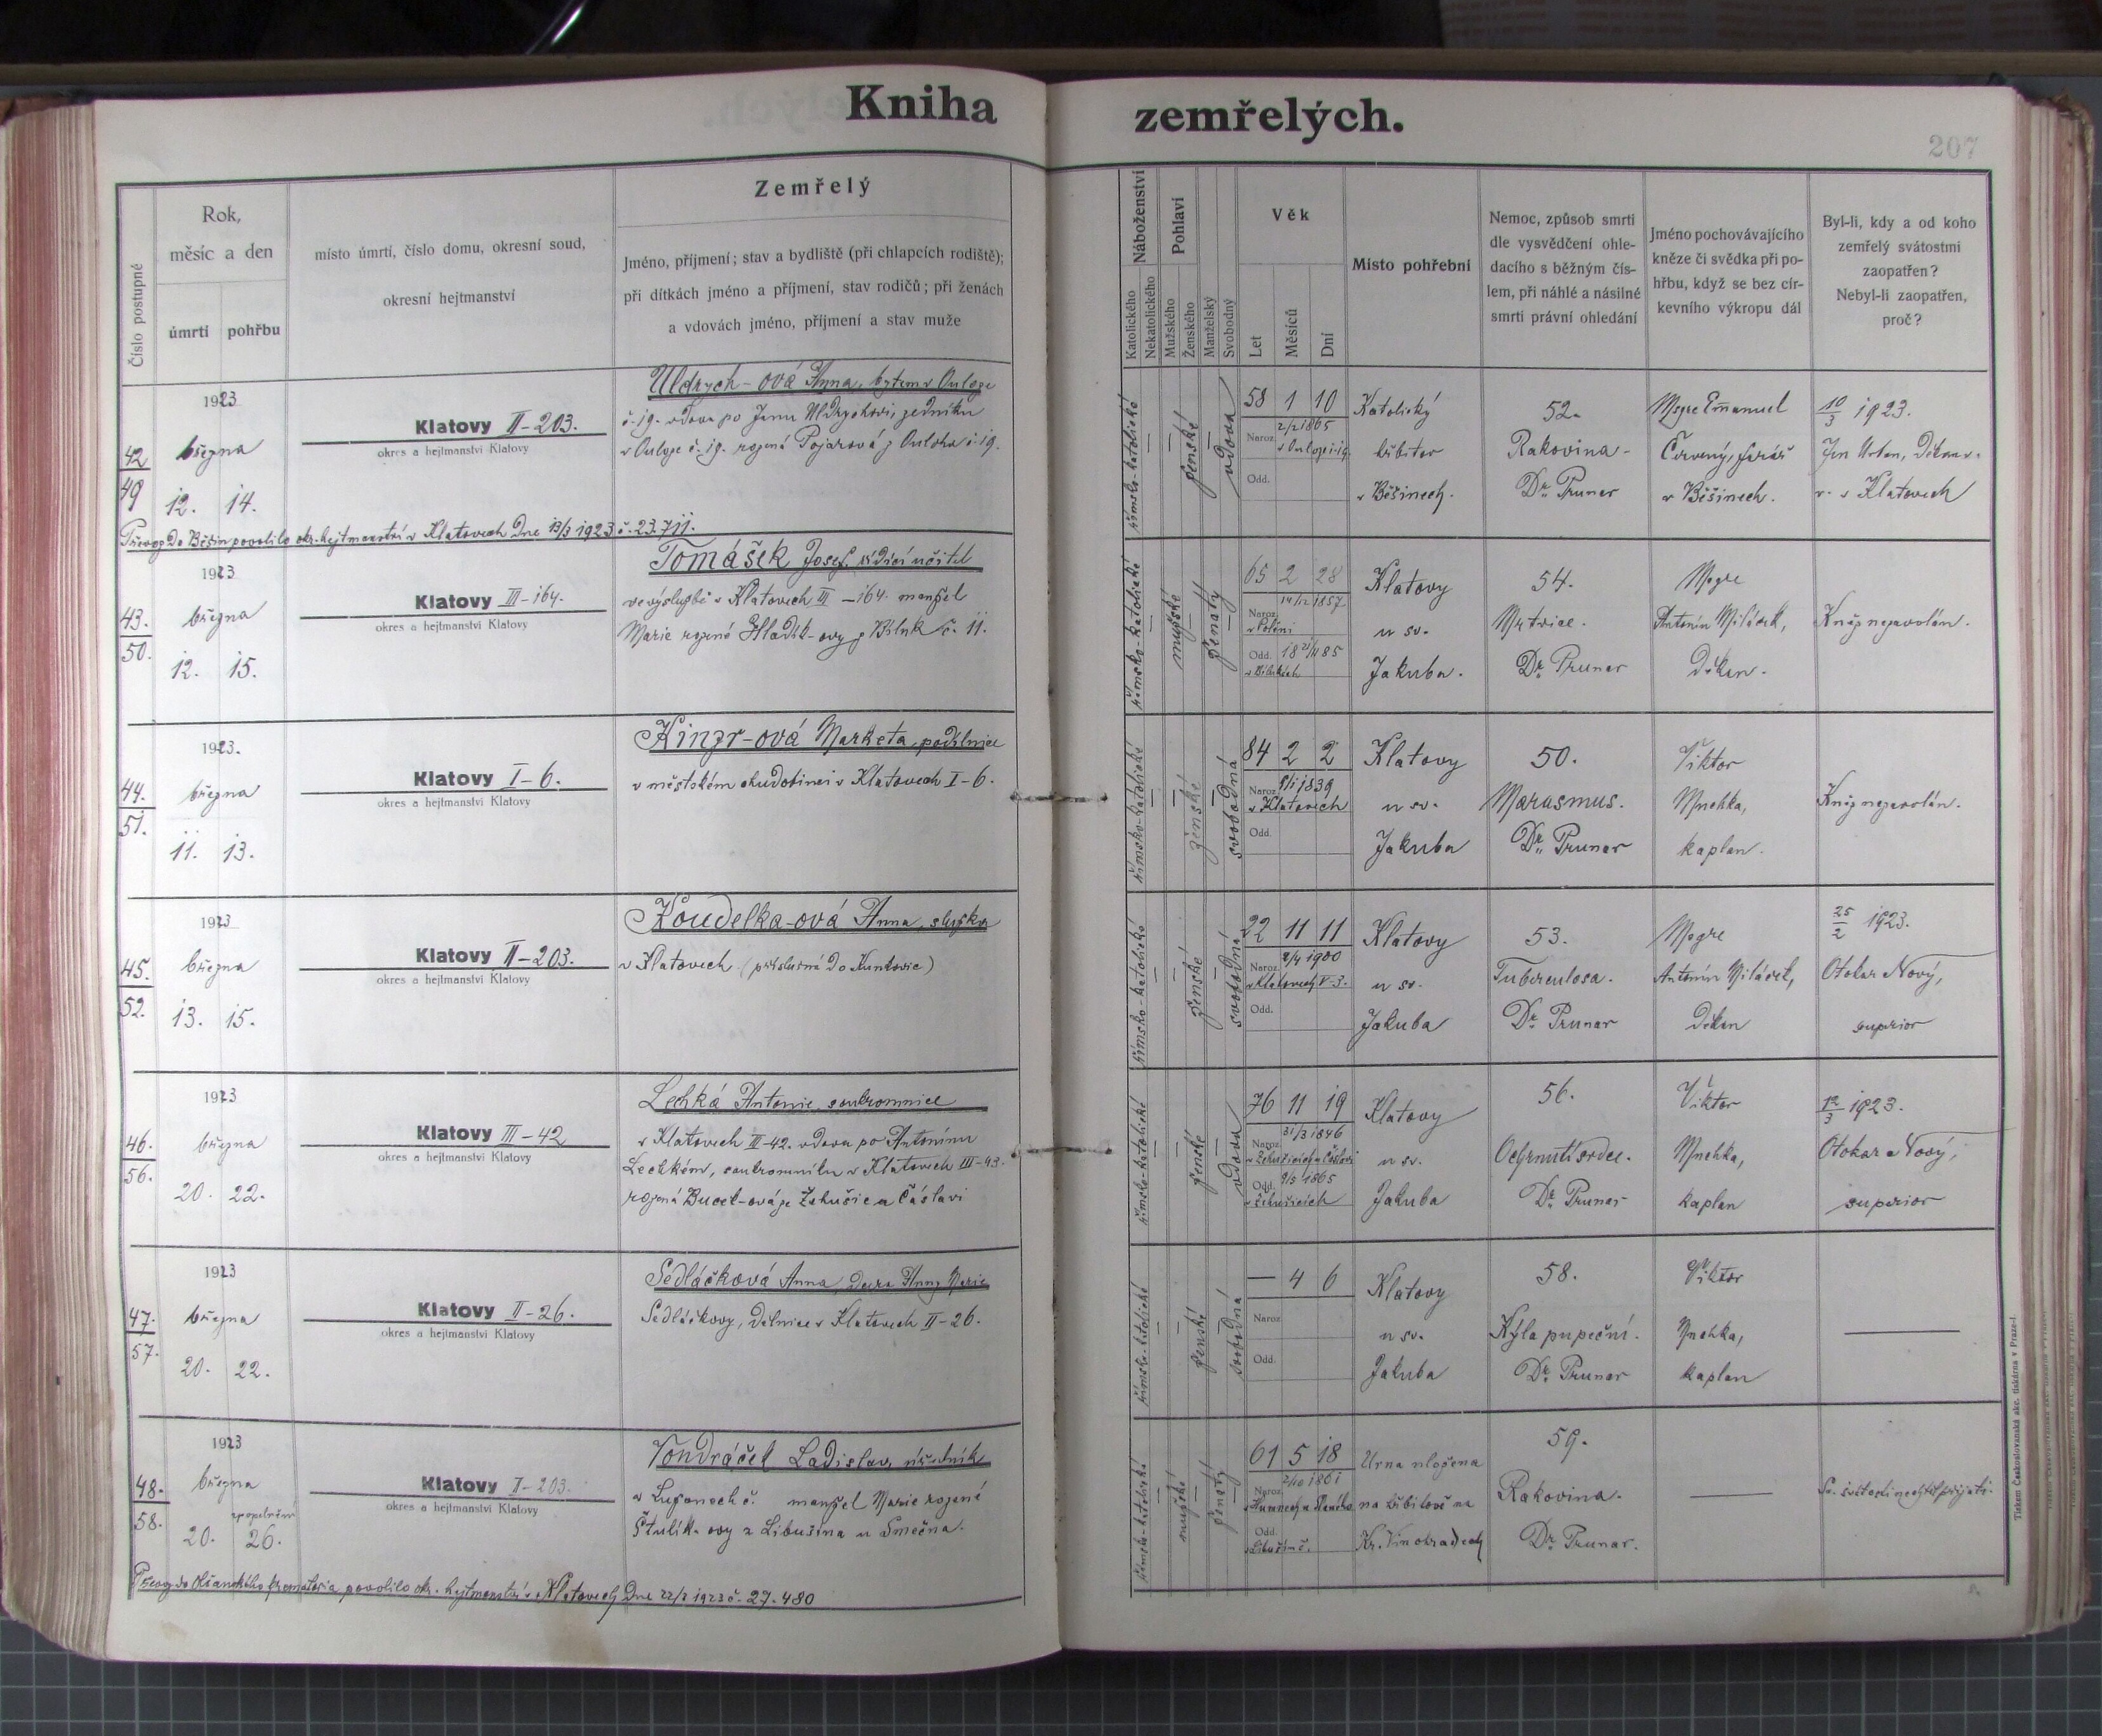 Kniha zemřelých.
207
Číslo postupné
Rok,
měsíc a den
úmrtí
pohřbu
místo úmrtí, číslo domu, okresní soud,
okresní hejtmanství
Zemřelý
Jméno, příjmení; stav a bydliště (při chlapcích rodiště);
při dítkách jméno a příjmení, stav rodičů; při ženách
a vdovách jméno, příjmení a stav muže
Náboženství
Katolického
Nekatolického
Pohlaví
Mužského
Ženského
Manželský
Svobodný
Věk
Let
Měsíců
Dní
Místo pohřební
Nemoc, způsob smrti
dle vysvědčení ohle-
dacího s běžným čís-
lem, při náhlé a násilné
smrti právní ohledání
Jméno pochovávajícího
kněze či svědka při po-
hřbu, když se bez cír-
kevního výkropu dál
Byl-li, kdy a od koho
zemřelý svátostmi
zaopatřen?
Nebyl-li zaopatřen,
proč?
42
49
1923
března
12. 14.
Klatovy II-203.
okres a hejtmanství Klatovy
Uldrych-ová Anna, bytem v
č. 19. vdova po Janu Uldrychovi,
č. 19. rozená Pojarová z č. 19.
římsko-katolické
ženské
vdova
58 1 10
Naroz. 2/2 1865
Odd.
Katolický
hřbitov
v Běšinech.
52.
Rakovina.
Dr. Pruner
Msgre Emanuel
Červený, farář
v Běšinech.
10/3 1923.
Jan Urban, děkan
v Klatovech
Převoz do Běšin povolilo okr. hejtmanství v Klatovech dne 13/3 1923 č. 23.711.
43.
50.
1923
března
12. 15.
Klatovy III-164.
okres a hejtmanství Klatovy
Tomášek Josef, řídící učitel
ve výslužbě v Klatovech III-164. manžel
Marie rozené Hladík-ovy z Bíluk č. 11.
římsko-katolické
mužské
ženatý
65 2 28
Naroz. 14/12 1857
v Poleni
Odd. 1885
v Bílukách
Klatovy
u sv.
Jakuba.
54.
Mrtvice.
Dr. Pruner
Msgre
Antonín Miláček,
děkan.
Kněz nezavolán.
44.
51.
1923.
března
11. 13.
Klatovy I-6.
okres a hejtmanství Klatovy
Kinzr-ová Marketa, podílnice
v městském chudobinci v Klatovech I-6.
římsko-katolické
ženské
svobodná
84 2 2
Naroz. 9/1 1839
v Klatovech
Odd.
Klatovy
u sv.
Jakuba
50.
Marasmus.
Dr. Pruner
Viktor
Mnehka,
kaplan.
Kněz nezavolán.
45.
52.
1923
března
13. 15.
Klatovy II-203.
okres a hejtmanství Klatovy
Koudelka-ová Anna, služka
v Klatovech (příslušná do Kuntovic)
římsko-katolické
ženské
svobodná
22 11 11
Naroz. 2/4 1900
v Klatovech V-3.
Odd.
Klatovy
u sv.
Jakuba
53.
Tuberculosa.
Dr. Pruner
Msgre
Antonín Miláček,
děkan
25/2 1923.
Otokar Nový,
superior
46.
56.
1923
března
20. 22.
Klatovy III-42
okres a hejtmanství Klatovy
Lehká Antonie, soukromnice
v Klatovech III-42. vdova po Antonínu
Lehkém, soukromníku v Klatovech III-43.
rozená Bucek-ová ze Žehušic u Čáslavi
římsko-katolické
ženské
vdova
76 11 19
Naroz. 31/3 1846
v Žehušicích u Čáslavi
Odd. 9/5 1865
v Žehušicích
Klatovy
u sv.
Jakuba
56.
Ochrnutí srdce.
Dr. Pruner
Viktor
Mnehka,
kaplan
12/3 1923.
Otokar Nový,
superior
47.
57.
1923
března
20. 22.
Klatovy II-26.
okres a hejtmanství Klatovy
Sedláčková Anna, dcera Anny Marie
Sedláčkovy, dělnice v Klatovech II-26.
římsko-katolické
ženské
svobodná
— 4 6
Naroz.
Odd.
Klatovy
u sv.
Jakuba
58.
Kýla pupeční.
Dr. Pruner
Viktor
Mnehka,
kaplan
48.
58.
1923
března
zpopelnění
20. 26.
Klatovy II-203.
okres a hejtmanství Klatovy
Vondráček Ladislav, úředník
v Luženech č. manžel Marie rozené
Štulík-ovy z Libušína u Smečna.
římsko-katolické
mužské
ženatý
61 5 18
Naroz. 2/10 1861
Odd.
Urna uložena
na hřbitově na
Kr. Vinohradech
59.
Rakovina.
Dr. Pruner.
Sv. svátosti nechtěl přijati.
Převoz do Olšanského krematoria povolilo okr. hejtmanství v Klatovech dne 22/3 1923 č. 27.480
Tiskem Českoslovanská akc. tiskárna v Praze-I.